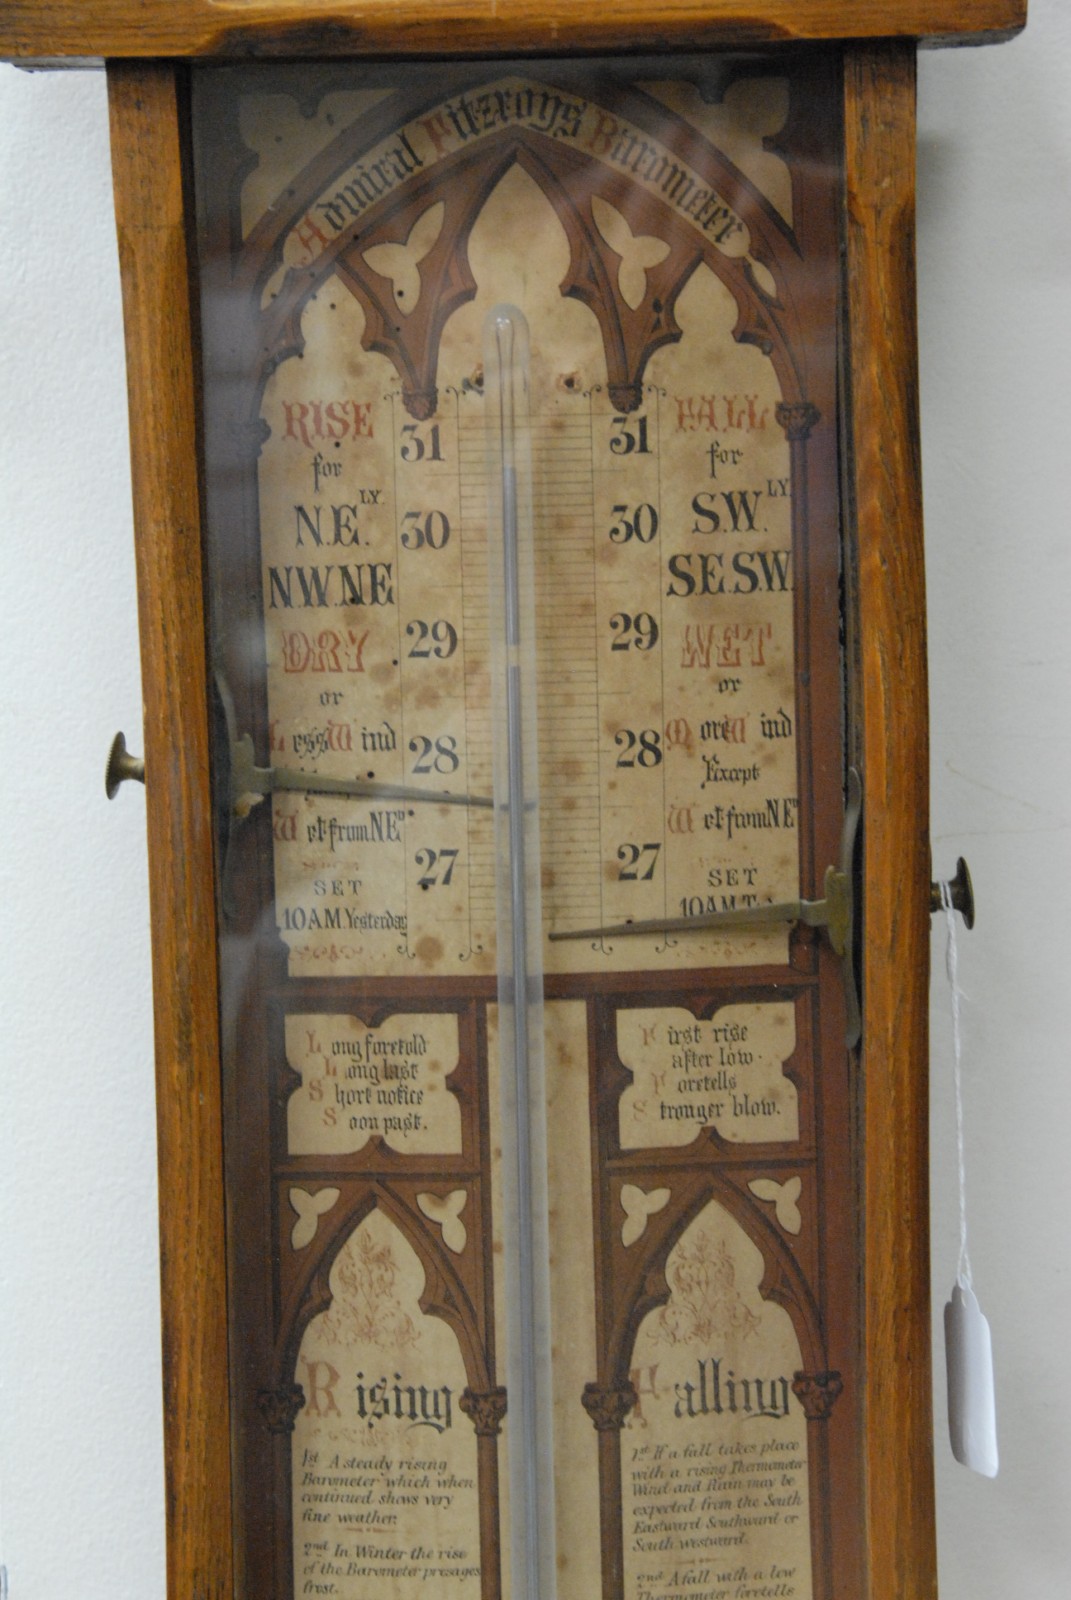 Admiral Fitzroys Barometer
RISE
for
N.E.LY.
N.W.N.E
DRY
or
Less Wind
Wet from N.Ed.
SET
10 A.M. Yesterday
31
30
29
28
27
31
30
29
28
27
FALL
for
S.W.LY.
S.E.S.W.
WET
or
More Wind
Except
Wet from N.Ed
SET
10 A.M.
Long foretold
Long last
Short notice
Soon past.
First rise
after low.
Foretells
Stronger blow.
Rising
1st A steady rising
Barometer which when
continued shows very
fine weather.
2nd In Winter the rise
of the Barometer presages
frost.
Falling
1st If a fall takes place
with a rising Thermometer
Wind and Rain may be
expected from the South
Eastward Southward or
South westward.
2nd A fall with a low
Thermometer foretells